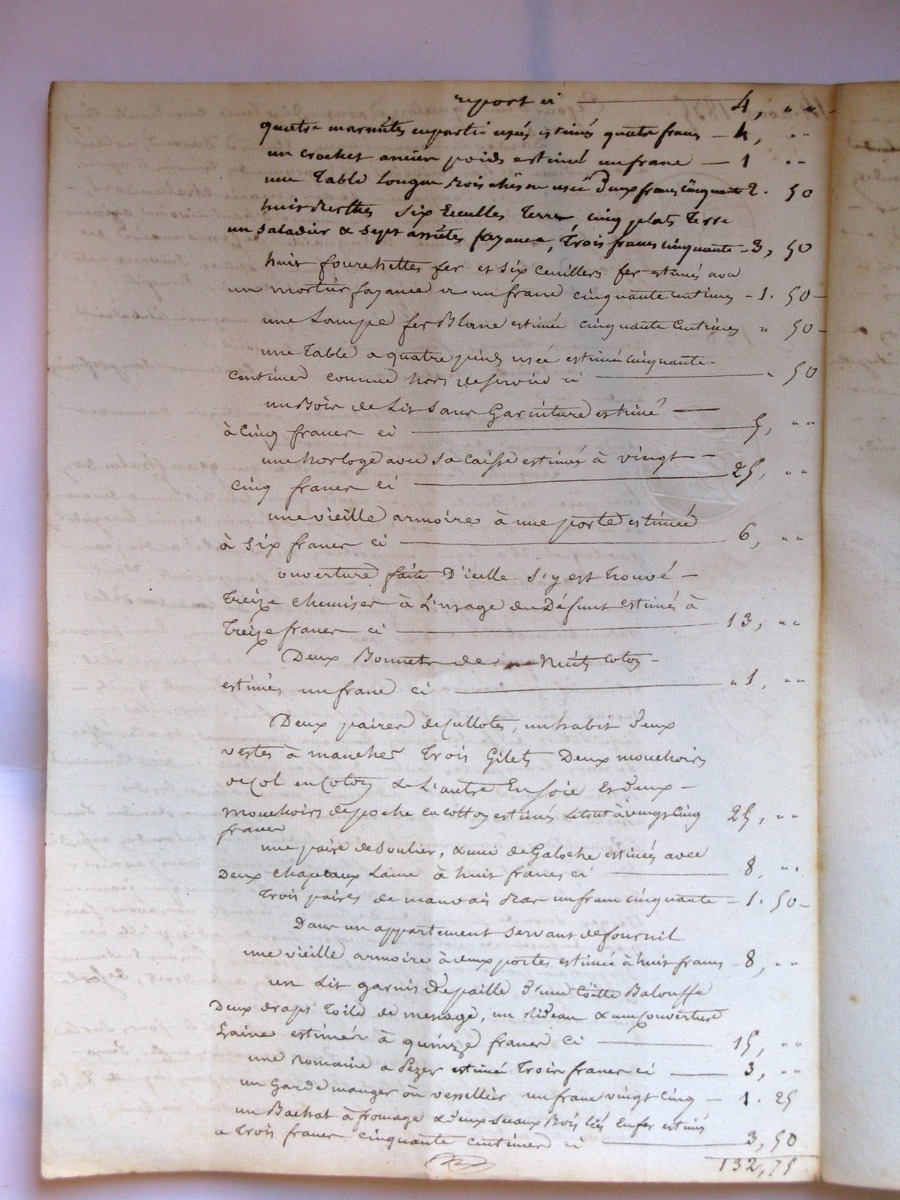 report ci — 4, " "
quatre marmites en partie usées estimés quatre francs — 4, " "
un crochet ancien poids estimé un franc — 1 " "
une Table Longue Bois chêsne usée Deux francs cinquante 2. 50
huit six Ecuelles Terre, cinq plats Terre
un saladier & sept assietes fayance, Trois francs cinquante - 3, 50
huit fourchettes fer et six Cuilliers fer estimés avec
un mortier fayance ci un franc cinquante centimes - 1. 50 -
une Lampe fer Blanc estimée cinquante Centimes " 50 -
une Table a quatre pieds usée estimé cinquante -
centimes comme hors de service ci — " 50
un Bois de Lit sans Garniture estimé —
à Cinq francs ci — 5, " "
une horloge avec sa caisse estimés à vingt -
cinq francs ci — 25, " "
une vieille armoire à une porte estimée
à six francs ci — 6, " "
ouverture faite D'icelle s'y est trouvé -
Treize chemises à L'usage du Défunt estimés à
Treize francs ci — 13, " "
Deux Bonnets de Nuit Coton -
estimés un franc ci — " 1, " "
Deux paires de Cullotes, un habit Deux
vestes à manches Trois Gilets Deux mouchoirs
de Col en Coton & L'autre En soie & Deux -
mouchoirs de poche en cotton estimés le tout à vingt Cinq 25, " "
francs
une paire de Soulier, & une de Galoche estimées avec
Deux chapeaux Laine à huit francs ci — 8, " "
Trois paires de mauvais Bas un franc cinquante - 1. 50 -
Dans un appartement servant de fournil
une vieille armoire à deux portes estimée à huit francs - 8, " "
un Lit garni De paille D'une Coëtte Balouffe
Deux draps Toile de menage, un Rideau & une Couverture
Laine estimés à quinze francs ci — 15, " "
une Romaine a Pezer estimé Trois francs ci — 3, " "
un Garde manger ou vesselier un franc vingt cinq - 1. 25
un Bachat à fromage & Deux Seaux Bois liés en fer estimés
a Trois francs cinquante centimes ci — 3, 50
132, 75